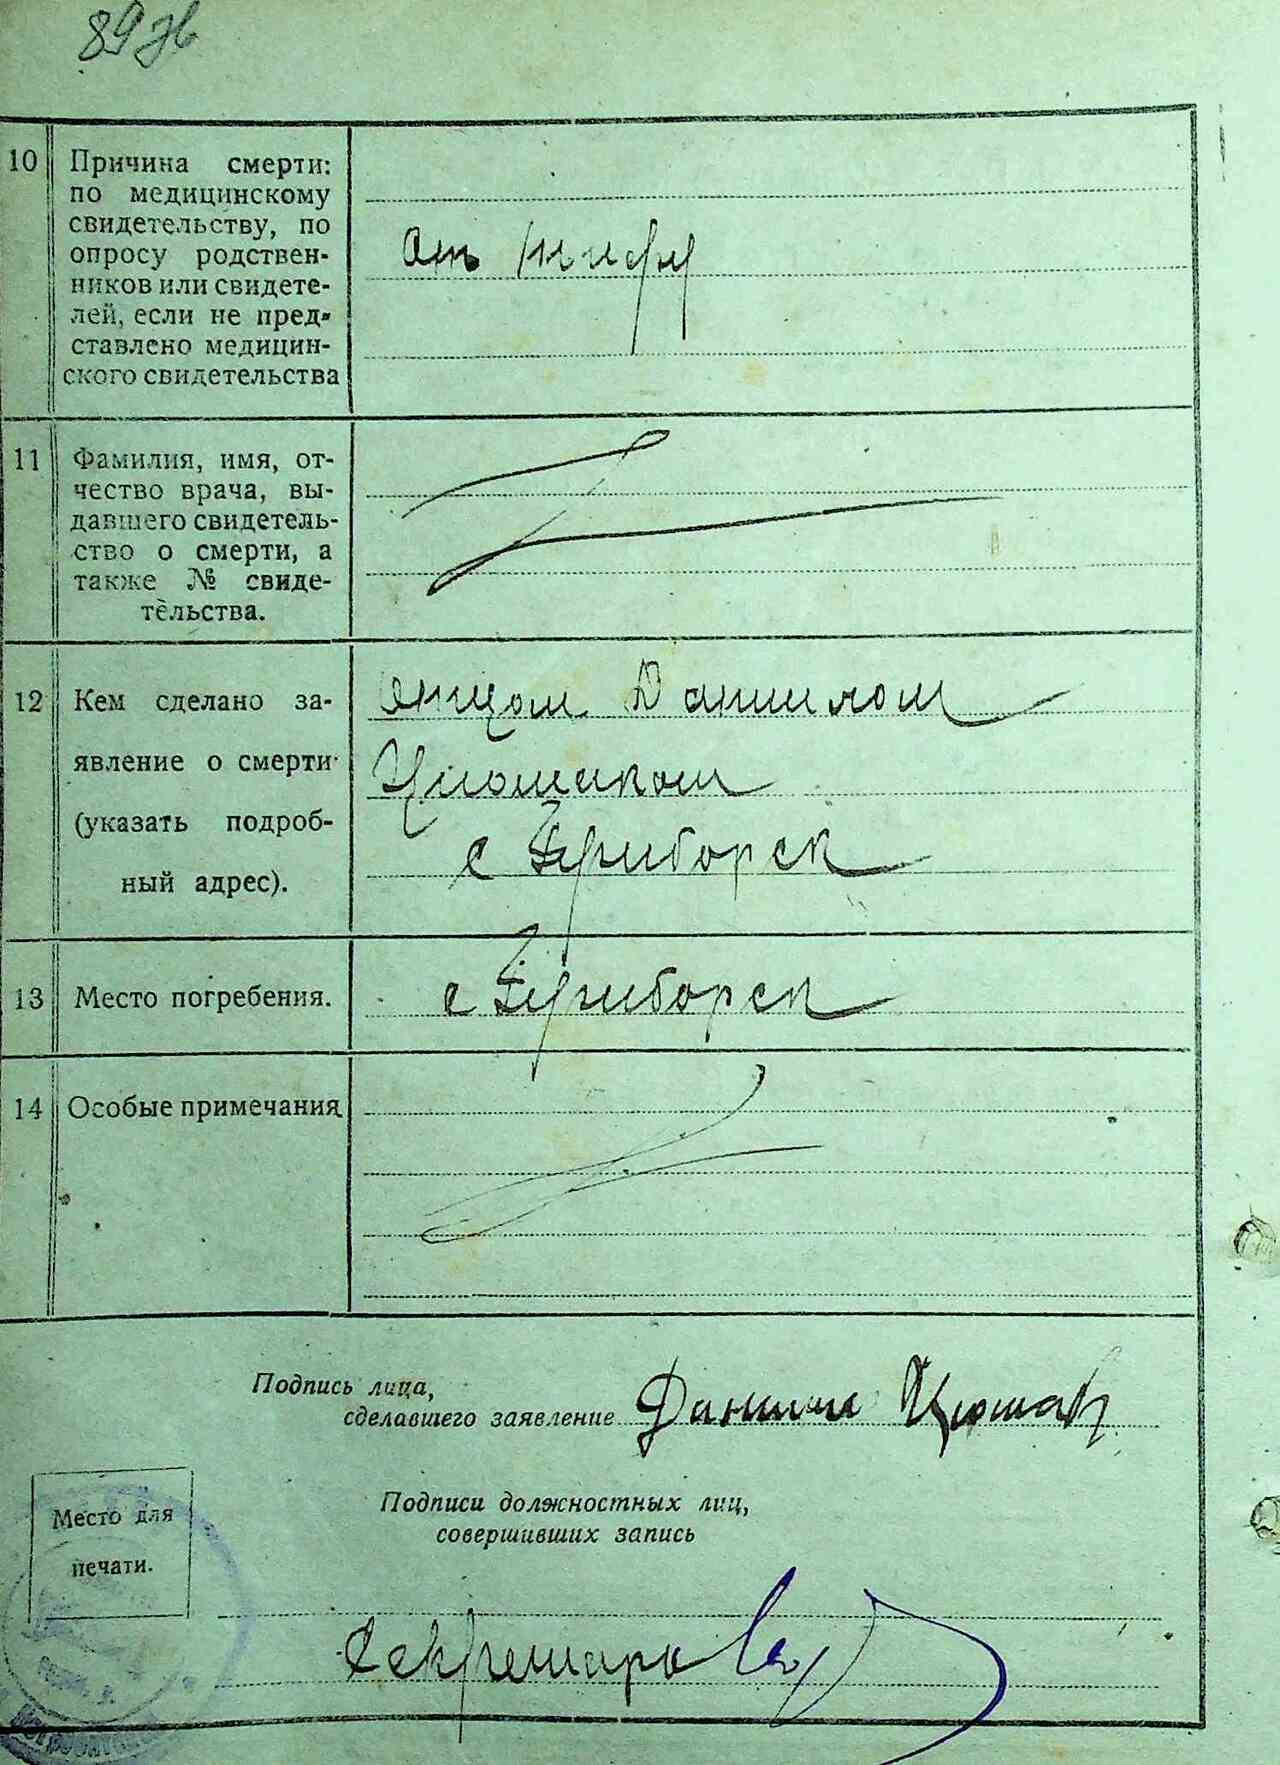 10 Причина смерти:
по медицинскому
свидетельству, по
опросу родствен-
ников или свидете-
лей, если не пред-
ставлено медицин-
ского свидетельства
От тифу
11 Фамилия, имя, от-
чество врача, вы-
давшего свидетель-
ство о смерти, а
также № свиде-
тельства.
12 Кем сделано за-
явление о смерти
(указать подроб-
ный адрес).
Отцом Данилом
с Приборск
13 Место погребения.
с Приборск
14 Особые примечания
Подпись лица,
сделавшего заявление Данило
Место для
печати.
Подписи должностных лиц,
совершивших запись
Секретарь